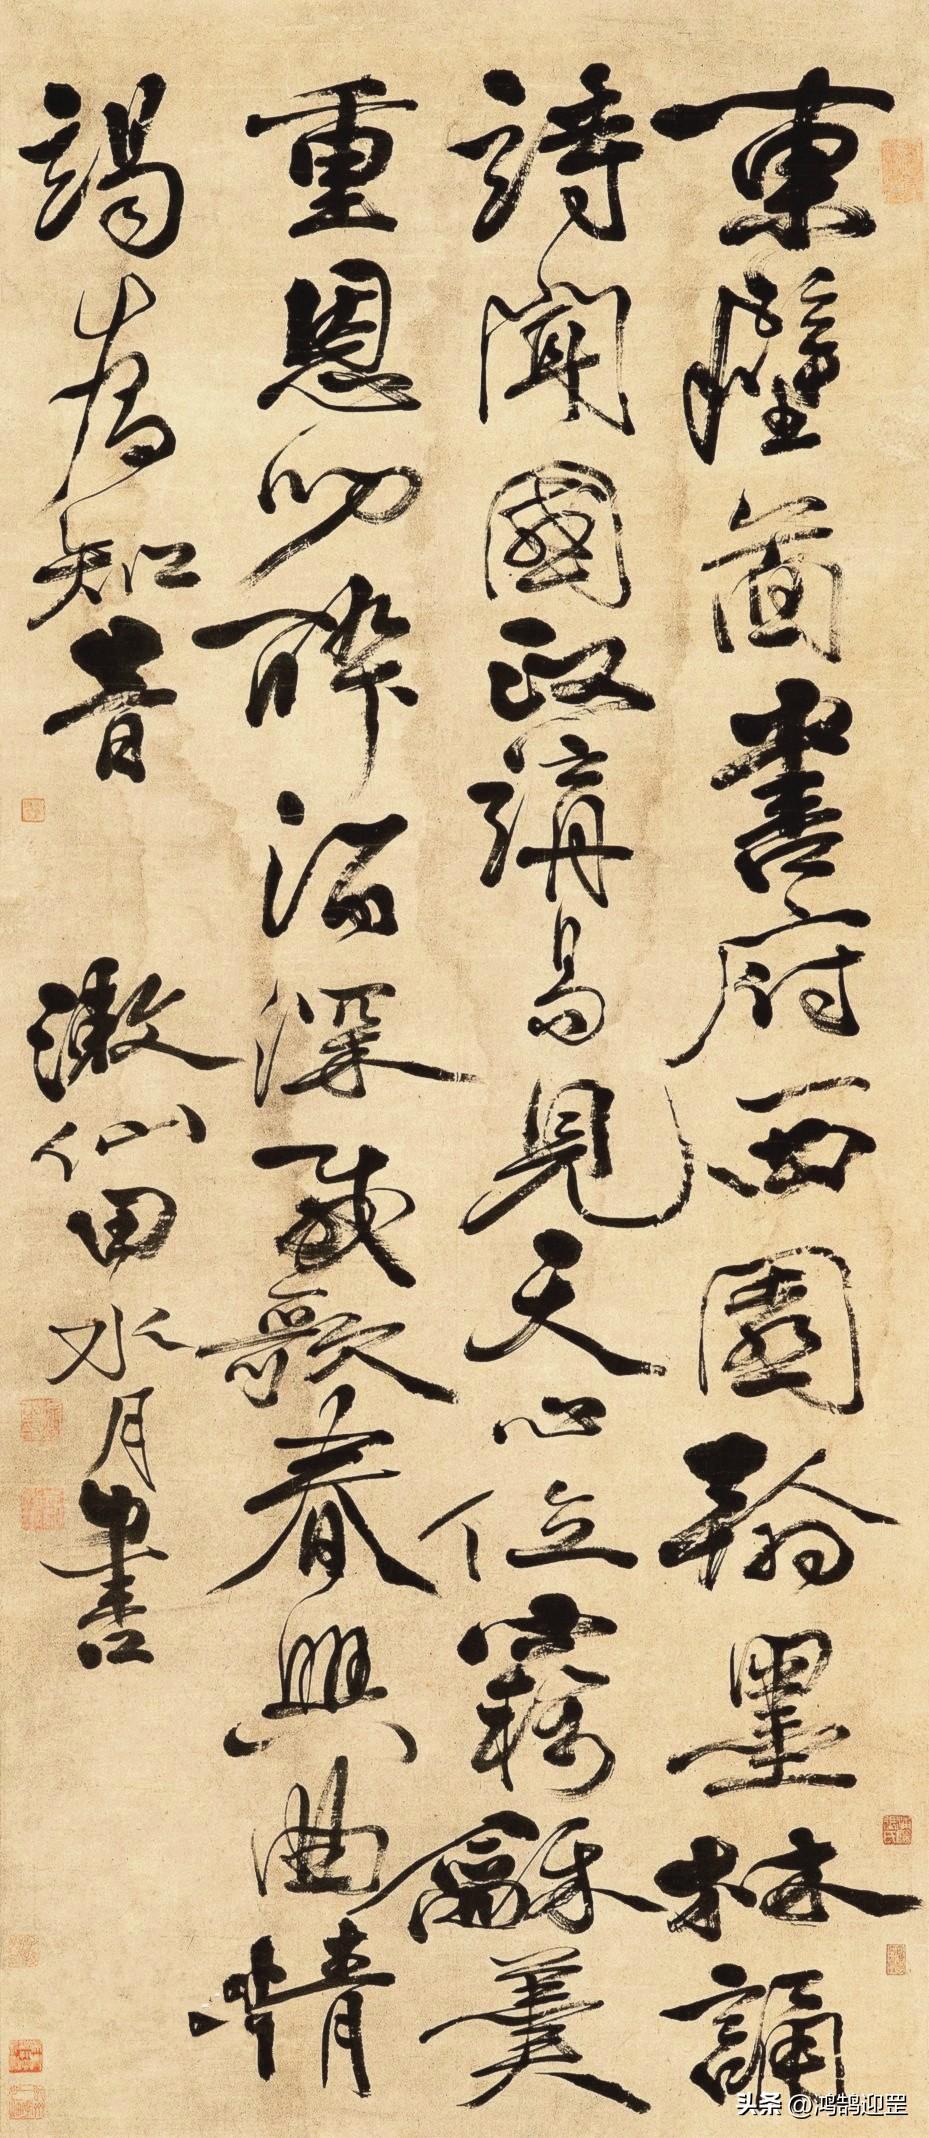 東壁圖書府西園翰墨林誦
詩聞國政講易見天心位竊龢羹
重恩叨醉酒深載歌春興曲情
竭為知音 漱仙田水月書
头条 @鸿鹄迎罡